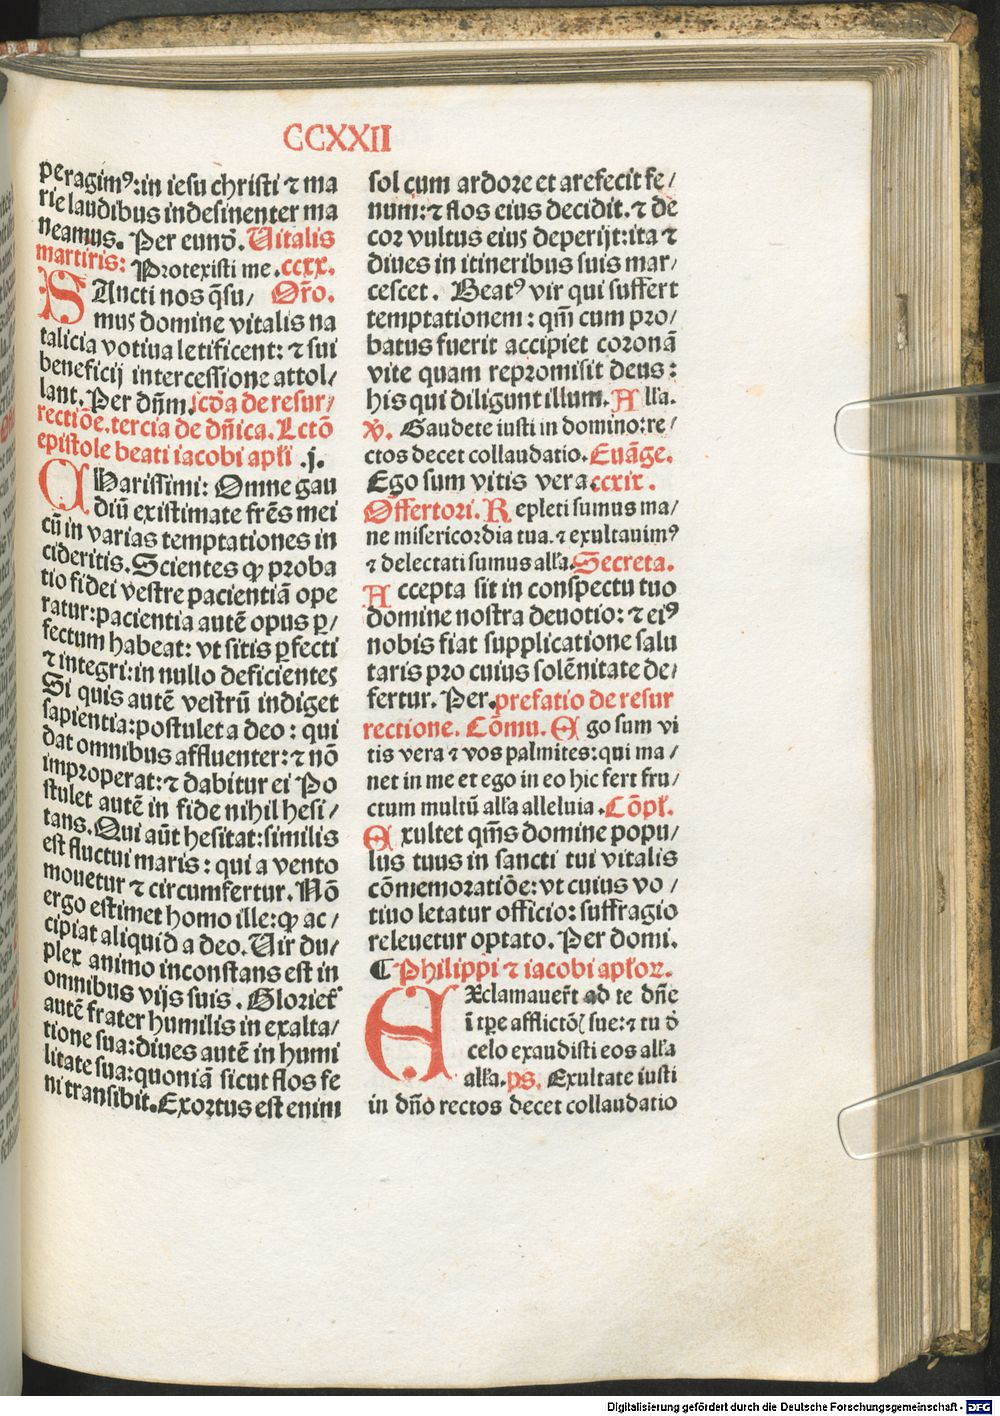 CCXXII
peragimꝰ:in iesu christi ⁊ ma
rie laudibus indesinenter ma
neamus. Per eunđ. Uitalis
martiris: Protexisti me .ccxx.
SAncti nos q̃su/ Or̃o.
mus domine vitalis na
talicia votiua letificent: ⁊ sui
beneficij intercessione attol/
lant. Per dñm. scđa de resur/
rectiõe.tercia de dñica. Lctõ
epistole beati iacobi apłi .j.
CHarissimi: Omne gau
diũ existimate fr̃es mei
cũ in varias temptationes in
cideritis. Scientes ꝙ proba
tio fidei vestre pacientiã ope
ratur:pacientia autẽ opus ꝑ/
fectum habeat: vt sitis ꝑfecti
⁊ integri:in nullo deficientes
Si quis autẽ vestrũ indiget
sapientia:postulet a deo : qui
dat omnibus affluenter:⁊ nõ
improperat:⁊ dabitur ei Po
stulet autẽ in fide nihil hesi/
tans. Qui aũt hesitat:similis
est fluctui maris : qui a vento
mouetur ⁊ circumfertur. Nõ
ergo estimet homo ille:ꝙ ac/
cipiat aliquid a deo. Uir du/
plex animo inconstans est in
omnibus vijs suis . Glorieť
autẽ frater humilis in exalta/
tione sua:diues autẽ in humi
litate sua:quoniã sicut flos fe
ni transibit. Exortus est enim
sol cum ardore et arefecit fe/
num:⁊ flos eius decidit.⁊ de
cor vultus eius deperijt:ita ⁊
diues in itineribus suis mar/
cescet . Beatꝰ vir qui suffert
temptationem : qm̃ cum pro/
batus fuerit accipiet coronã
vite quam repromisit deus :
his qui diligunt illum. Alła.
V̾. Gaudete iusti in domino:re/
ctos decet collaudatio. Euãge.
Ego sum vitis vera .ccxix.
Offertori. Repleti sumus ma/
ne misericordia tua.⁊ exultauimꝰ
⁊ delectati sumus alła. Secreta.
Accepta sit in conspectu tuo
domine nostra deuotio: ⁊ eiꝰ
nobis fiat supplicatione salu
taris pro cuius solẽnitate de/
fertur. Per. prefatio de resur
rectione. Cõmu. Ego sum vi
tis vera ⁊ vos palmites:qui ma/
net in me et ego in eo hic fert fru/
ctum multũ alła alleluia . Cõpł.
Exultet qm̃s domine popu/
lus tuus in sancti tui vitalis
cõmemoratiõe: vt cuius vo/
tiuo letatur officio: suffragio
releuetur optato. Per domi.
¶ Philippi ⁊ iacobi apłoꝝ.
EXclamauer̃t ad te dñe
ĩ tꝑe afflictõis sue:⁊ tu đ
celo exaudisti eos alła
alła. ps. Exultate iusti
in dño rectos decet collaudatio
Digitalisierung gefördert durch die Deutsche Forschungsgemeinschaft - DFG